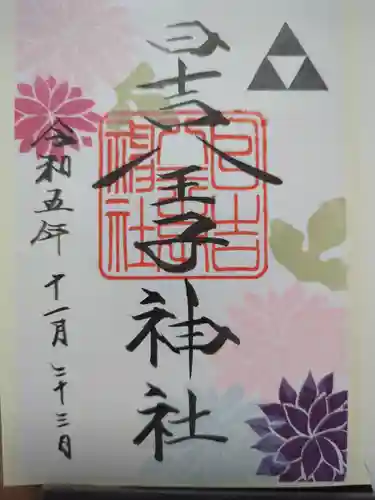 日吉八王子神社
令和五年 十一月 二十三日
日吉八王子神社